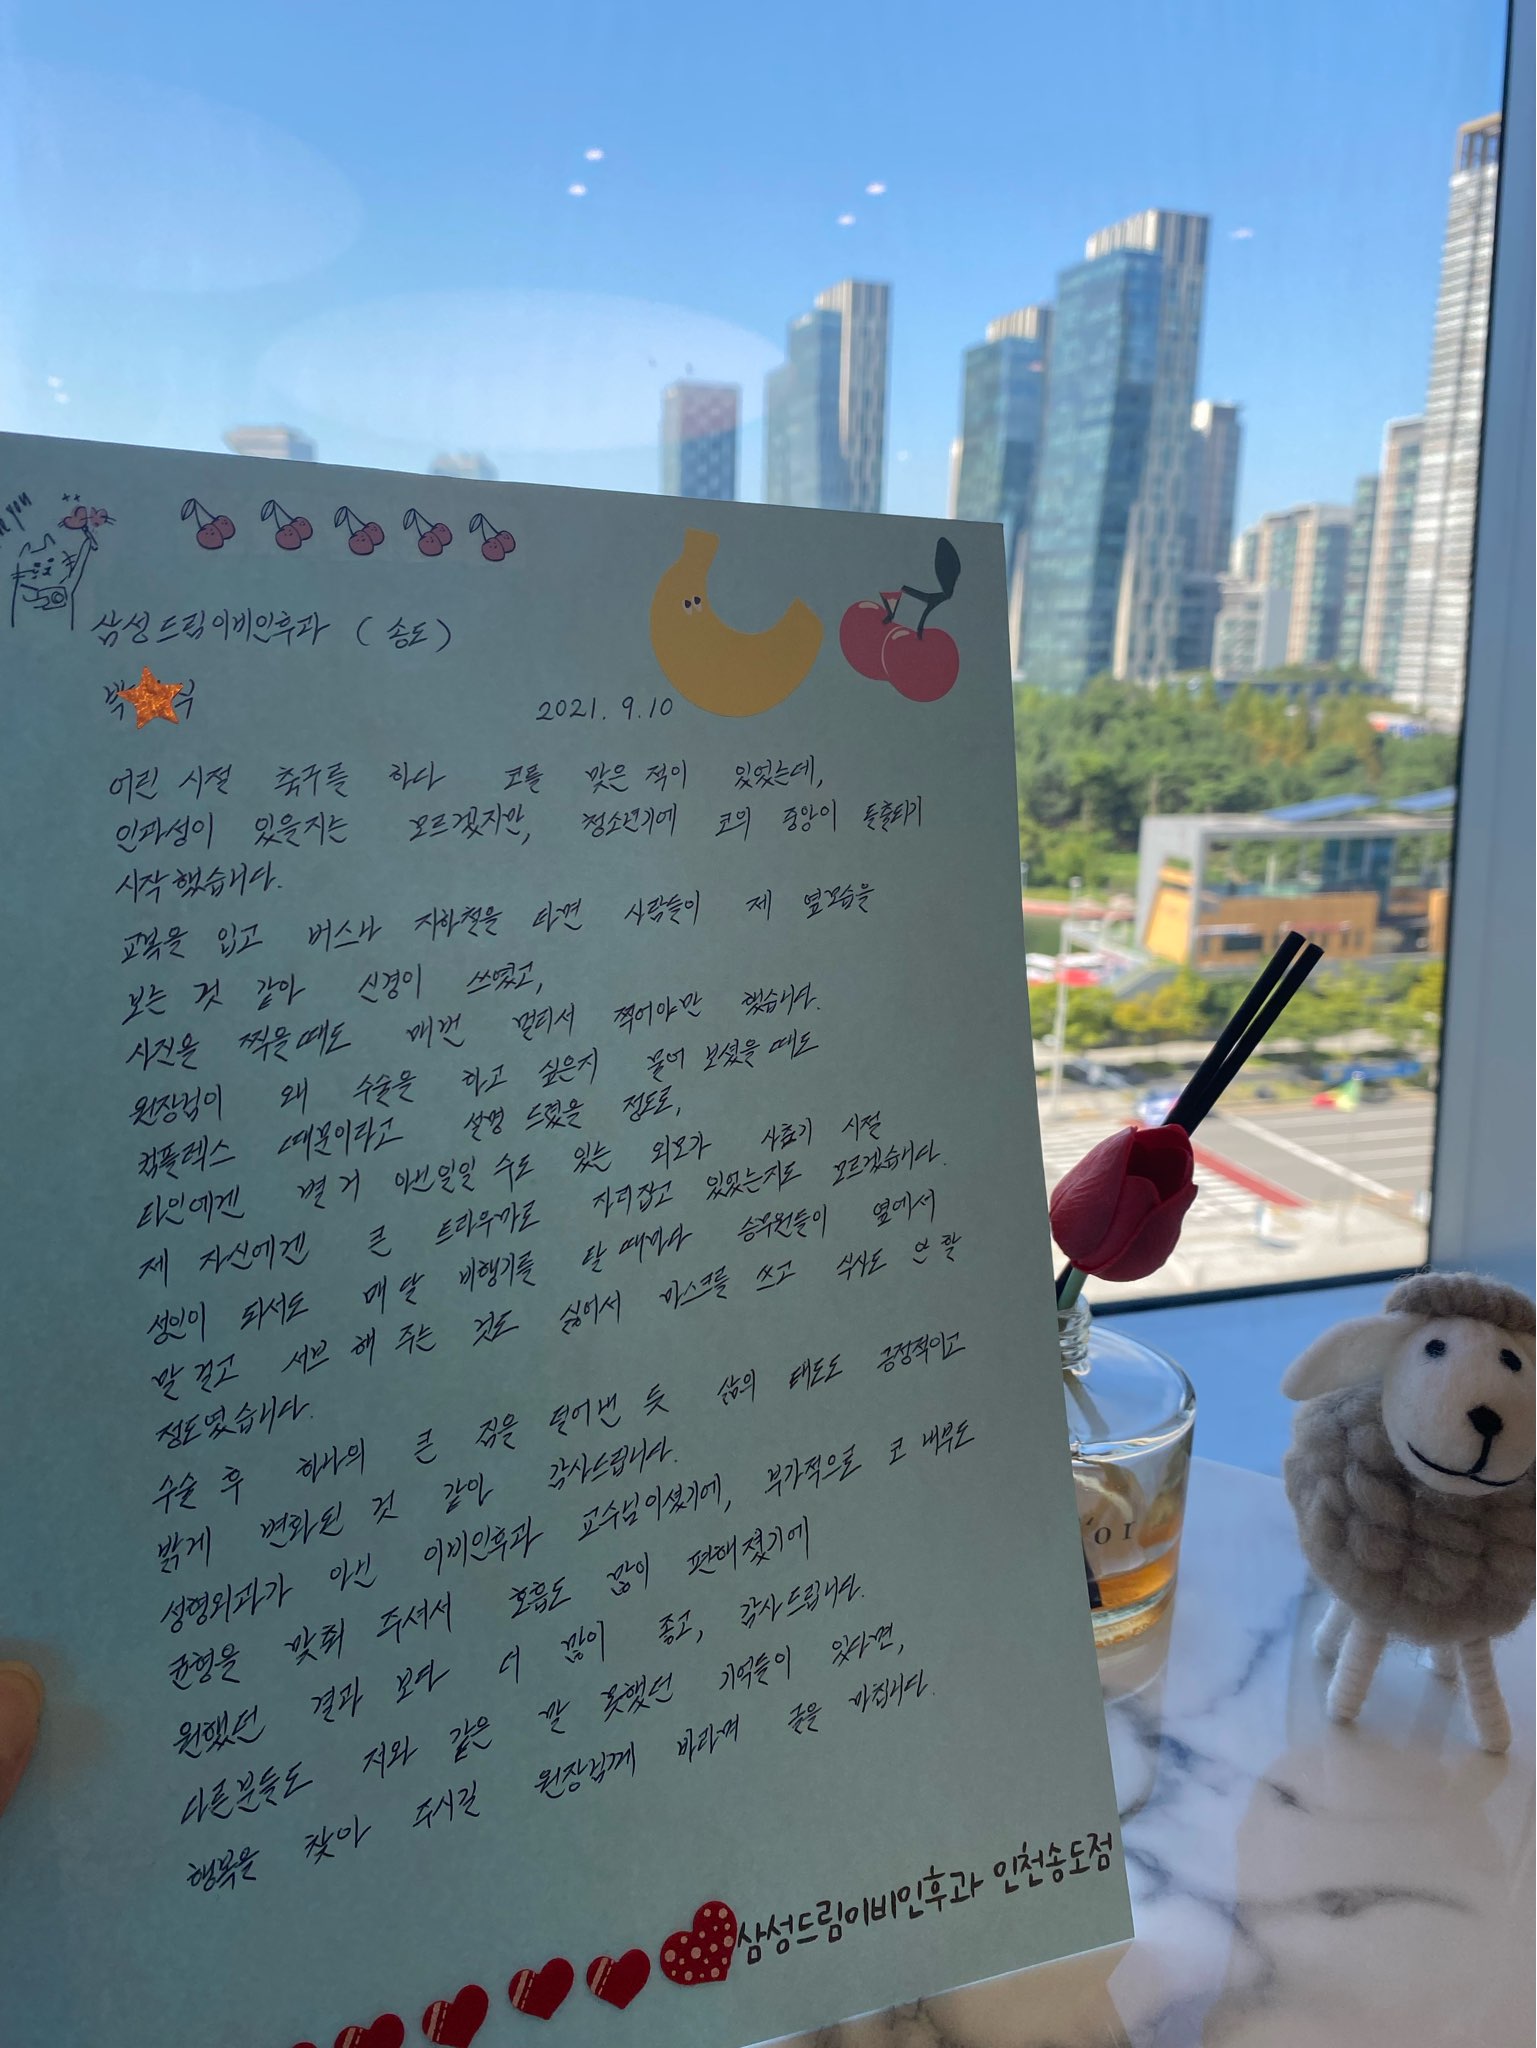 you
삼성드림이비인후과 (송도)
박 식
2021. 9. 10
어린 시절 축구를 하다 코를 맞은 적이 있었는데,
인과성이 있을지는 모르겠지만, 청소년기에 코의 중앙이 돌출되기
시작했습니다.
교복을 입고 버스나 지하철을 타면 사람들이 제 옆모습을
보는 것 같아 신경이 쓰였고,
사진을 찍을때도 매번 멀리서 찍어야만 했습니다.
원장님이 왜 수술을 하고 싶은지 물어 보셨을 때도
컴플렉스 때문이라고 설명 드렸을 정도로,
타인에겐 별 거 아닌일일 수도 있는 외모가 사춘기 시절
제 자신에겐 큰 트라우마로 자리잡고 있었는지도 모르겠습니다.
성인이 되서도 매 달 비행기를 탈 때마다 승무원들이 옆에서
말 걸고 서브 해 주는 것도 싫어서 마스크를 쓰고 식사도 안 할
정도였습니다.
수술 후 하나의 큰 짐을 덜어낸 듯 삶의 태도도 긍정적이고
밝게 변화된 것 같아 감사드립니다.
성형외과가 아닌 이비인후과 교수님이셨기에, 부가적으로 코 내부도
균형을 맞춰 주셔서 호흡도 많이 편해졌기에
원했던 결과 보다 더 많이 좋고, 감사드립니다.
다른분들도 저와 같은 말 못했던 기억들이 있다면,
행복을 찾아 주시길 원장님께 바라며 글을 마칩니다.
삼성드림이비인후과 인천송도점
or